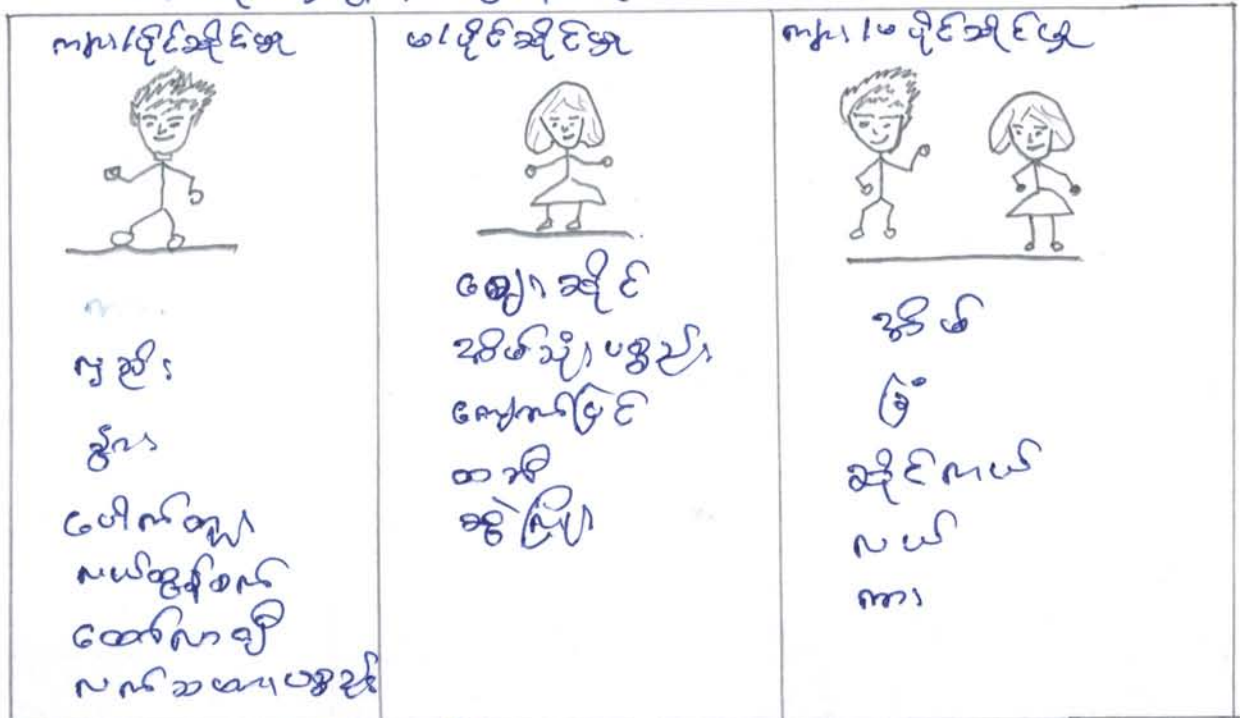 ကျား/ပိုင်ဆိုင်မှု
မ/ပိုင်ဆိုင်မှု
ကျား/မ ပိုင်ဆိုင်မှု
လှည်း
နွား
ပေါက်တူး
လယ်ထွန်စက်
ထော်လာဂျီ
လက်သမားပစ္စည်း
ဈေးဆိုင်
အိမ်သုံးပစ္စည်း
ကျောက်ပြင်
ထဘီ
ဆွဲကြိုး
အိမ်
ခြံ
ဆိုင်ကယ်
လယ်
ကား